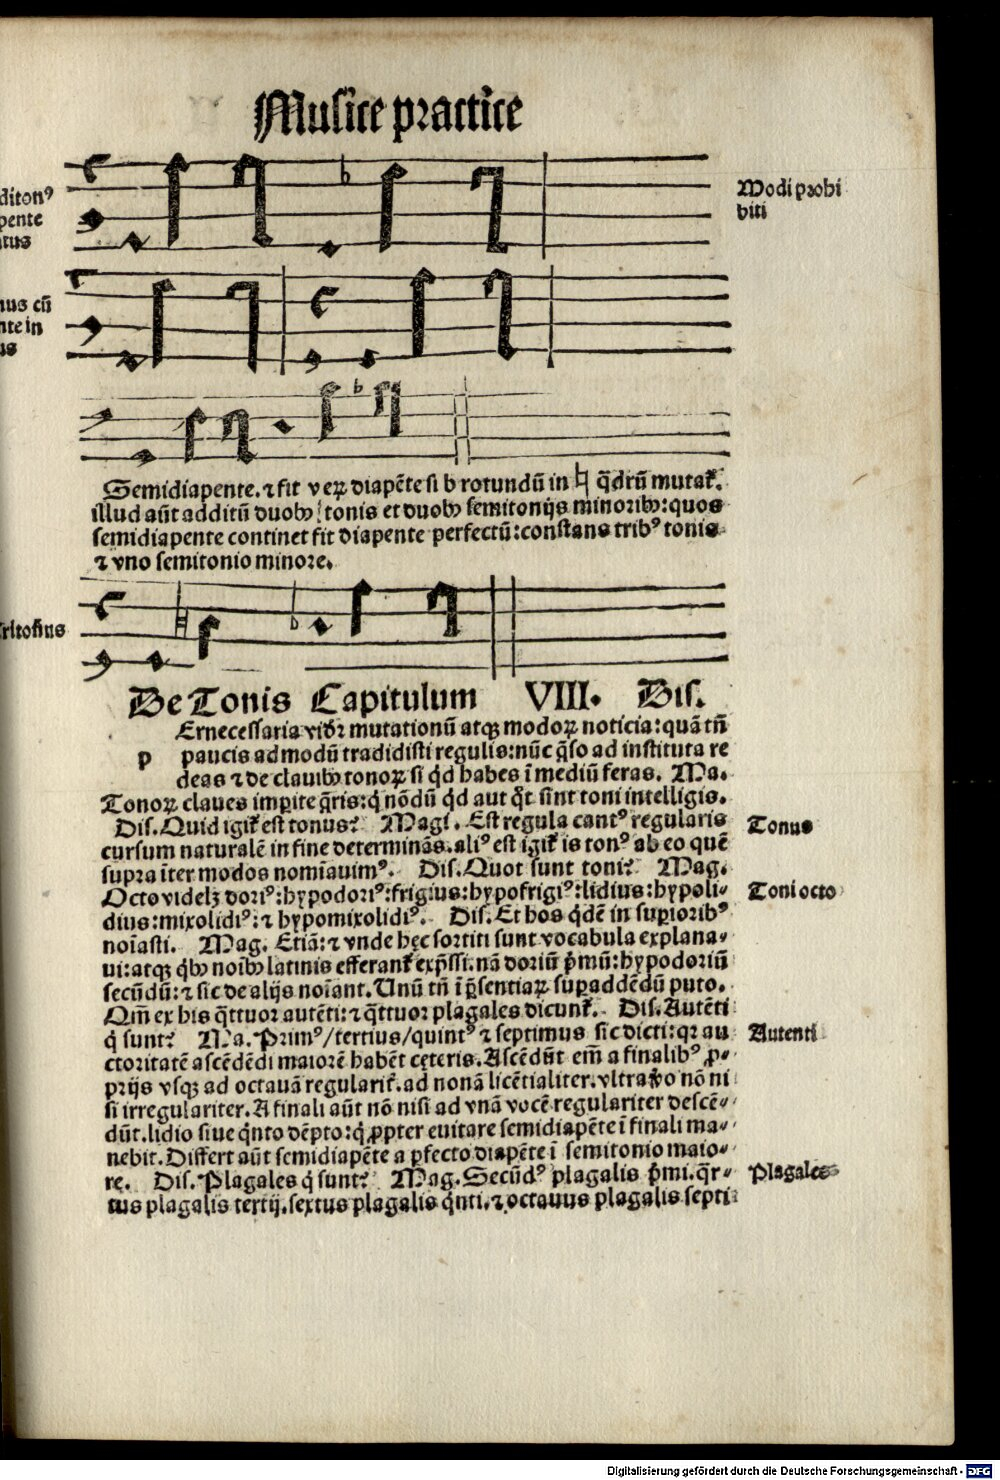 Musice practice
diton⁹
pente
tus
Modi prohi
biti
nus cũ
nte in
us
Semidiapente. ⁊ fit verꝝ diapẽte si b rotundũ in ♮ q̃drũ mutat᷑.
illud aũt additũ duobꝰ tonis et duobꝰ semitonijs minoribꝰ: quos
semidiapente continet fit diapente perfectũ: constans trib⁹ tonis
⁊ vno semitonio minore.
De Tonis Capitulum VIII. Dis.
p
Ernecessaria videt᷑ mutationũ atqꝫ modoꝝ noticia: quã tñ
paucis admodũ tradidisti regulis: nũc q̃so ad instituta re
deas ⁊ de clauibꝰ tonoꝝ si qd̃ habes ĩ mediũ feras. Ma.
Tonoꝝ claues imꝑite q̃ris: q̃ nõdũ qd̃ aut q̃t sint toni intelligis.
Dis. Quid igit᷑ est tonus? Magi. Est regula cant⁹ regularis
Tonus
cursum naturalẽ in fine determinãs. ali⁹ est igit᷑ is ton⁹ ab eo quẽ
supra iter modos nomĩauim⁹. Dis. Quot sunt toni? Mag.
Octo videlꝫ dori⁹: hypodori⁹: frigius: hypofrigi⁹: lidius: hypoli⸗
Toni octo
dius: mixolidi⁹: ⁊ hypomixolidi⁹. Dis. Et hos q̃dẽ in suꝑiorib⁹
noĩasti. Mag. Etiã: ⁊ vnde hęc sortiti sunt vocabula explana⸗
ui: atqꝫ q̃bꝰ noĩbꝰ latinis efferant᷑ exp̃ssi. nã doriũ p̃mũ: hypodoriũ
secũdũ: ⁊ sic de alijs noĩant. Unũ tñ ĩ p̃sentiaꝝ suꝑaddẽdũ puto.
Qm̃ ex his q̃ttuor autẽti: ⁊ q̃ttuor plagales dicunt᷑. Dis. Autẽti
q̃ sunt? Ma. Prim⁹/tertius/quint⁹ ⁊ septimus sic dicti: qꝛ au
Autenti
ctoritatẽ ascẽdẽdi maiorẽ habẽt cęteris. Ascẽdũt em̃ a finalib⁹ ꝓ⸗
prijs vsqꝫ ad octauã regularit᷑. ad nonã licẽtialiter. vltra ṽo nõ ni
si irregulariter. A finali aũt nõ nisi ad vnã vocẽ regulariter descẽ⸗
dũt. lidio siue q̃nto dẽpto: q̃ ꝓpter euitare semidiapẽte ĩ finali ma⸗
nebit. Differt aũt semidiapẽte a ꝑfecto diapẽte ĩ semitonio maio⸗
re. Dis. Plagales q̃ sunt? Mag. Secũd⁹ plagalis p̃mi. q̃r⸗
Plagales
tus plagalis tertij. sextus plagalis q̃nti. ⁊ octauus plagalis septi
Digitalisierung gefördert durch die Deutsche Forschungsgemeinschaft - DFG